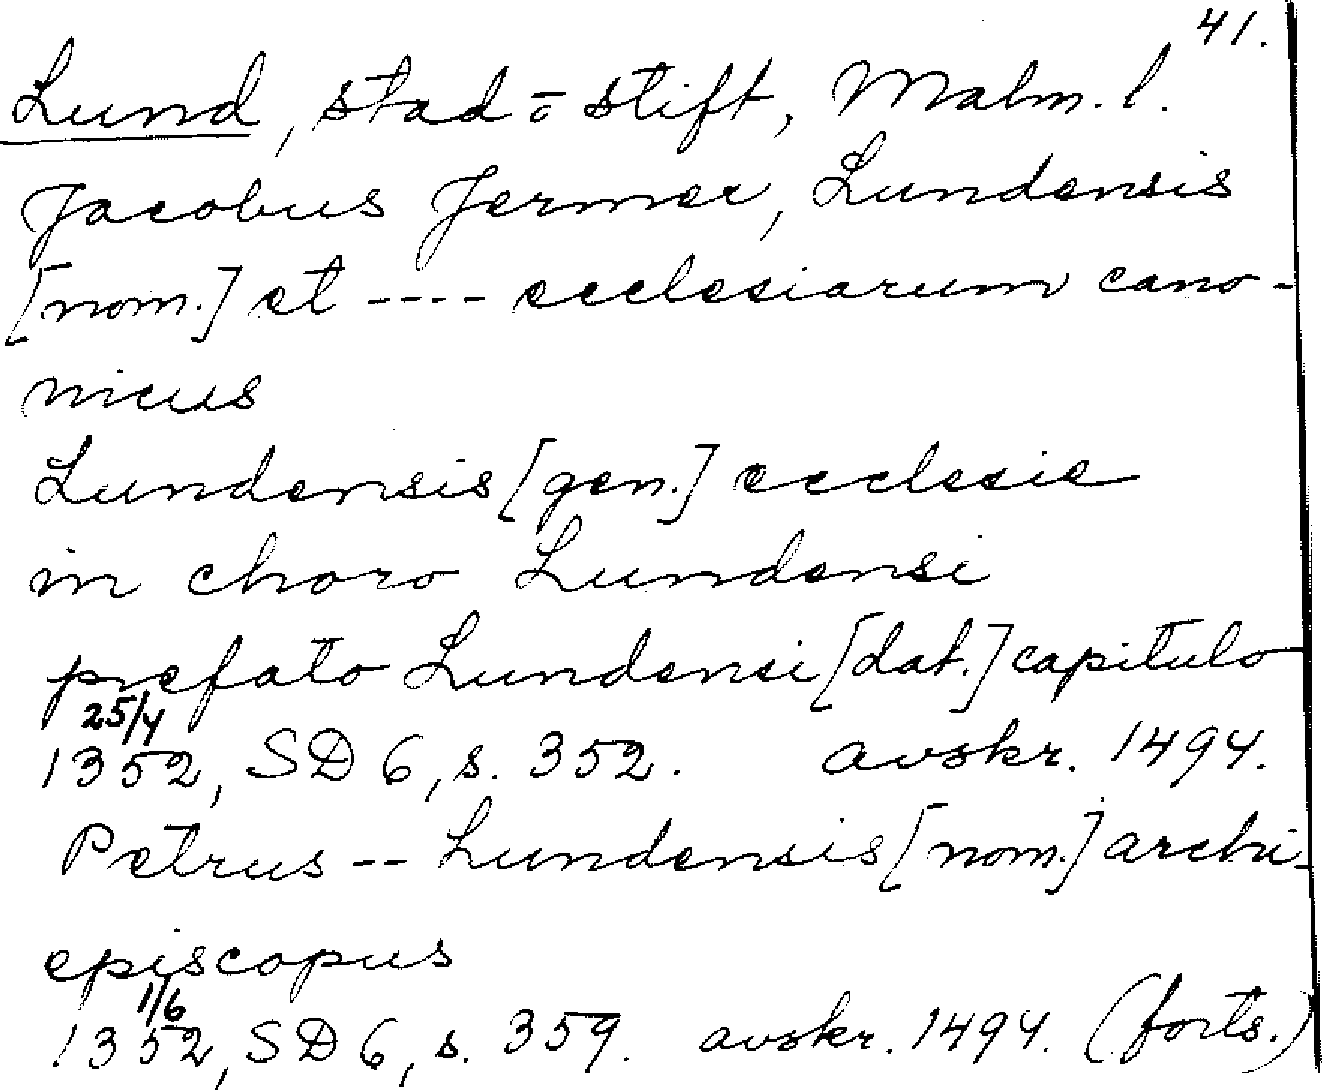 41.
Lund, stad o stift, Malm. l.
Jacobus Jermer, Lundensis
[nom.] et ---- ecclesiarum cano-
nicus
Lundensis [gen.] ecclesie
in choro Lundensi
prefato Lundensi [dat.] capitulo
25/4
1352, SD 6, s. 352. avskr. 1494.
Petrus -- Lundensis [nom.] archi-
episcopus
1/6
1352, SD 6, s. 359. avskr. 1494. (forts.)